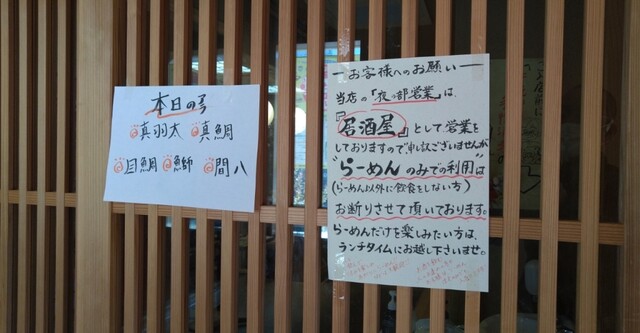 本日の号
真羽太
真鯛
目鯛
魚師
間八
お客様へのお願い
当店の「夜の部営業」は、
『居酒屋』として営業を
しておりますので申し訳ございませんが
"らーめんのみでの利用"は
(らーめん以外に飲食をしない方)
お断りさせて頂いております。
らーめんだけを楽しみたい方は、
ランチタイムにお越し下さいませ。